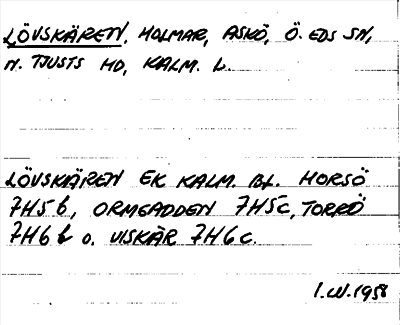 LÖVSKÄREN, HOLMAR, ASKÖ, Ö. EDS SN,
N. TJUSTS HD, KALM. L.
LÖVSKÄREN EK KALM. BL. HORSÖ
7H5b, ORMGADDEN 7H5c, TORRÖ
7H6b o. VISKÄR 7H6c.
I.W. 1958